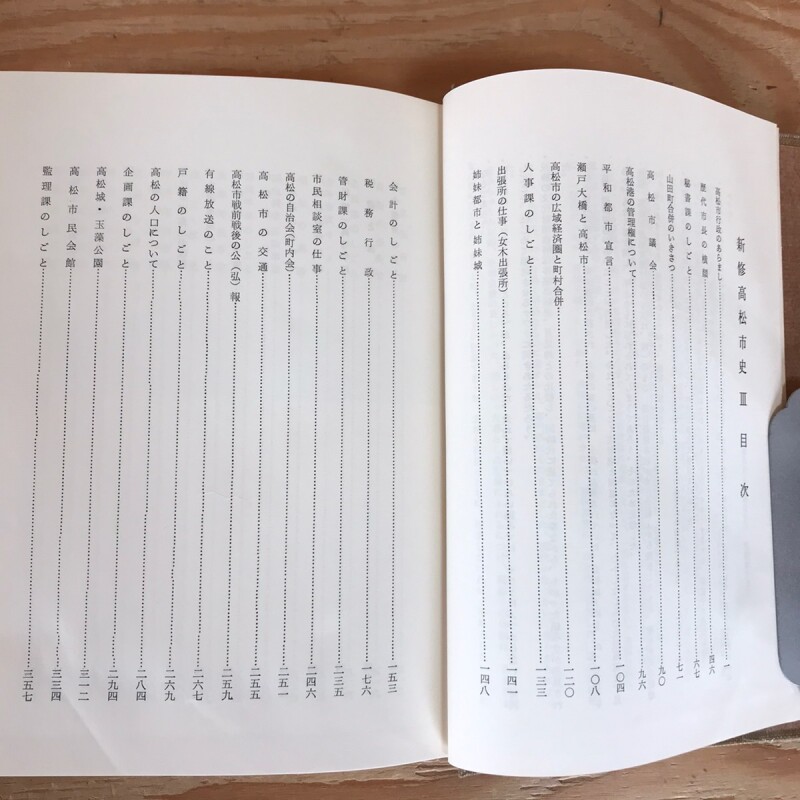 新修高松市史Ⅲ目次
高松市行政のあらまし……一
歴代市長の横顔……四六
秘書課のしごと……六七
山田町合併のいきさつ……七一
高松市議会……九〇
高松港の管理権について……九六
平和都市宣言……一〇四
瀬戸大橋と高松市……一〇八
高松市の広域経済圏と町村合併……一二〇
人事課のしごと……一三三
出張所の仕事（女木出張所）……一四一
姉妹都市と姉妹城……一四八
会計のしごと……一五三
税務行政……一七六
管財課のしごと……二三五
市民相談室の仕事……二四六
高松の自治会（町内会）……二五一
高松市の交通……二五五
高松市戦前戦後の公（弘）報……二五九
有線放送のこと……二六七
戸籍のしごと……二六九
高松の人口について……二八四
企画課のしごと……二九四
高松城・玉藻公園……三一二
高松市民会館……三三四
監理課のしごと……三五七